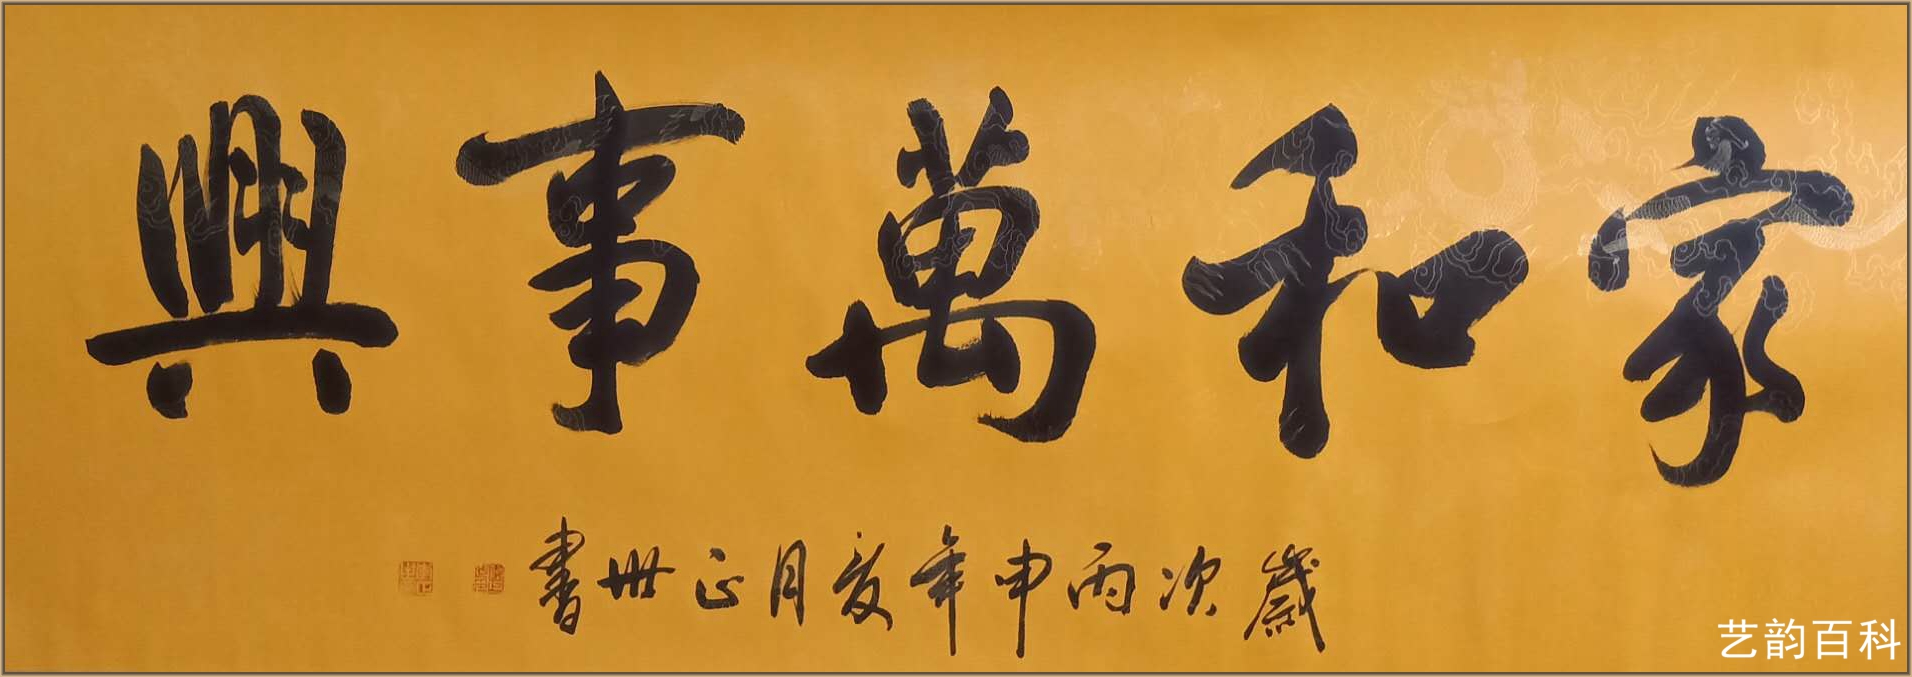 家和萬事興
歲次丙申年夏月正卅書
艺韵百科